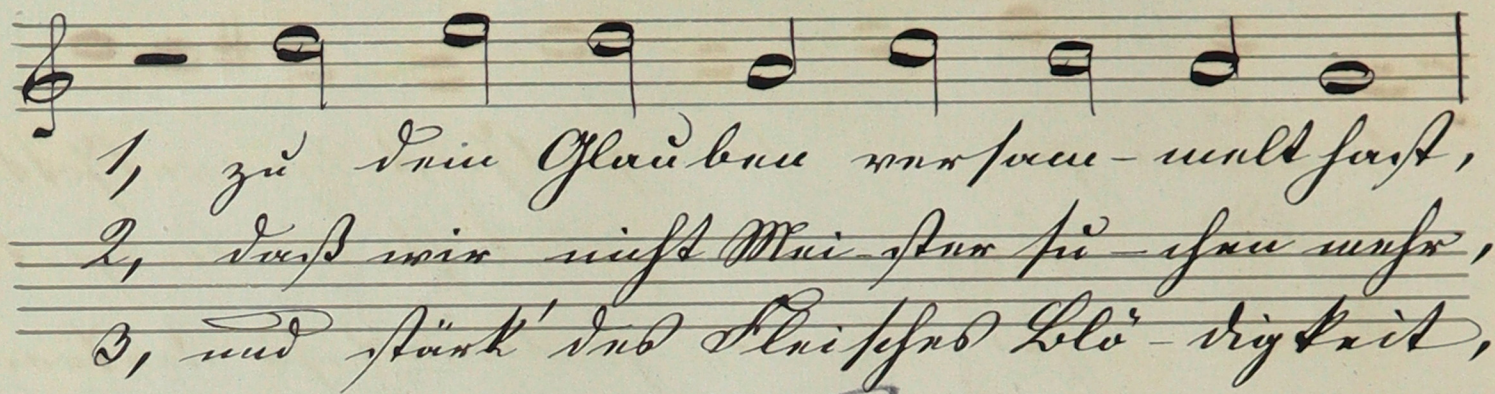 1, zu dein Glauben versam-melt hast,
2, daß wir nicht Mei-ster su-chen mehr,
3, und stärk' des Fleisches Blö-digkeit,